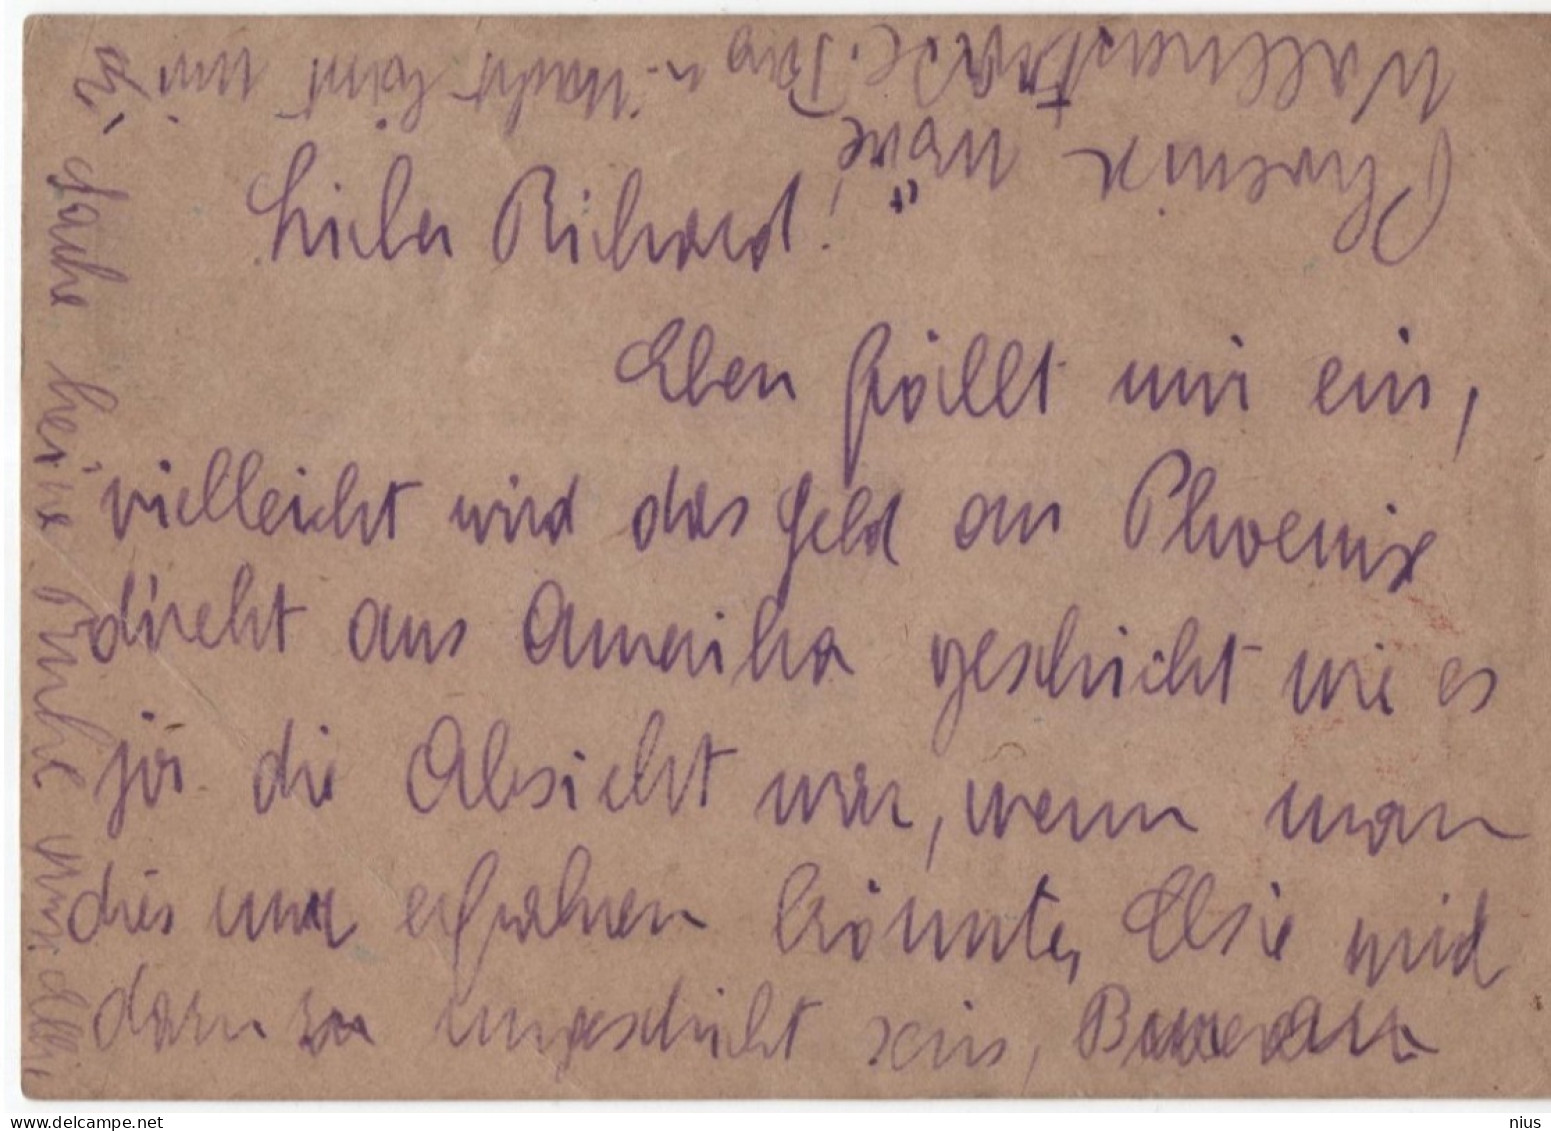 Lieber Richard!
Eben fällt mir ein,
vielleicht wird das Geld an Phoenix
direkt aus Amerika geschickt wie es
ja die Absicht war, wenn man
dies nur erfahren könnte, Elsie wird
dazu zu ungeschickt sein,
Phoenix wäre
Wallnerstraße. Tag u. Nacht
habe keine Ruhe
delcampe.net
nius